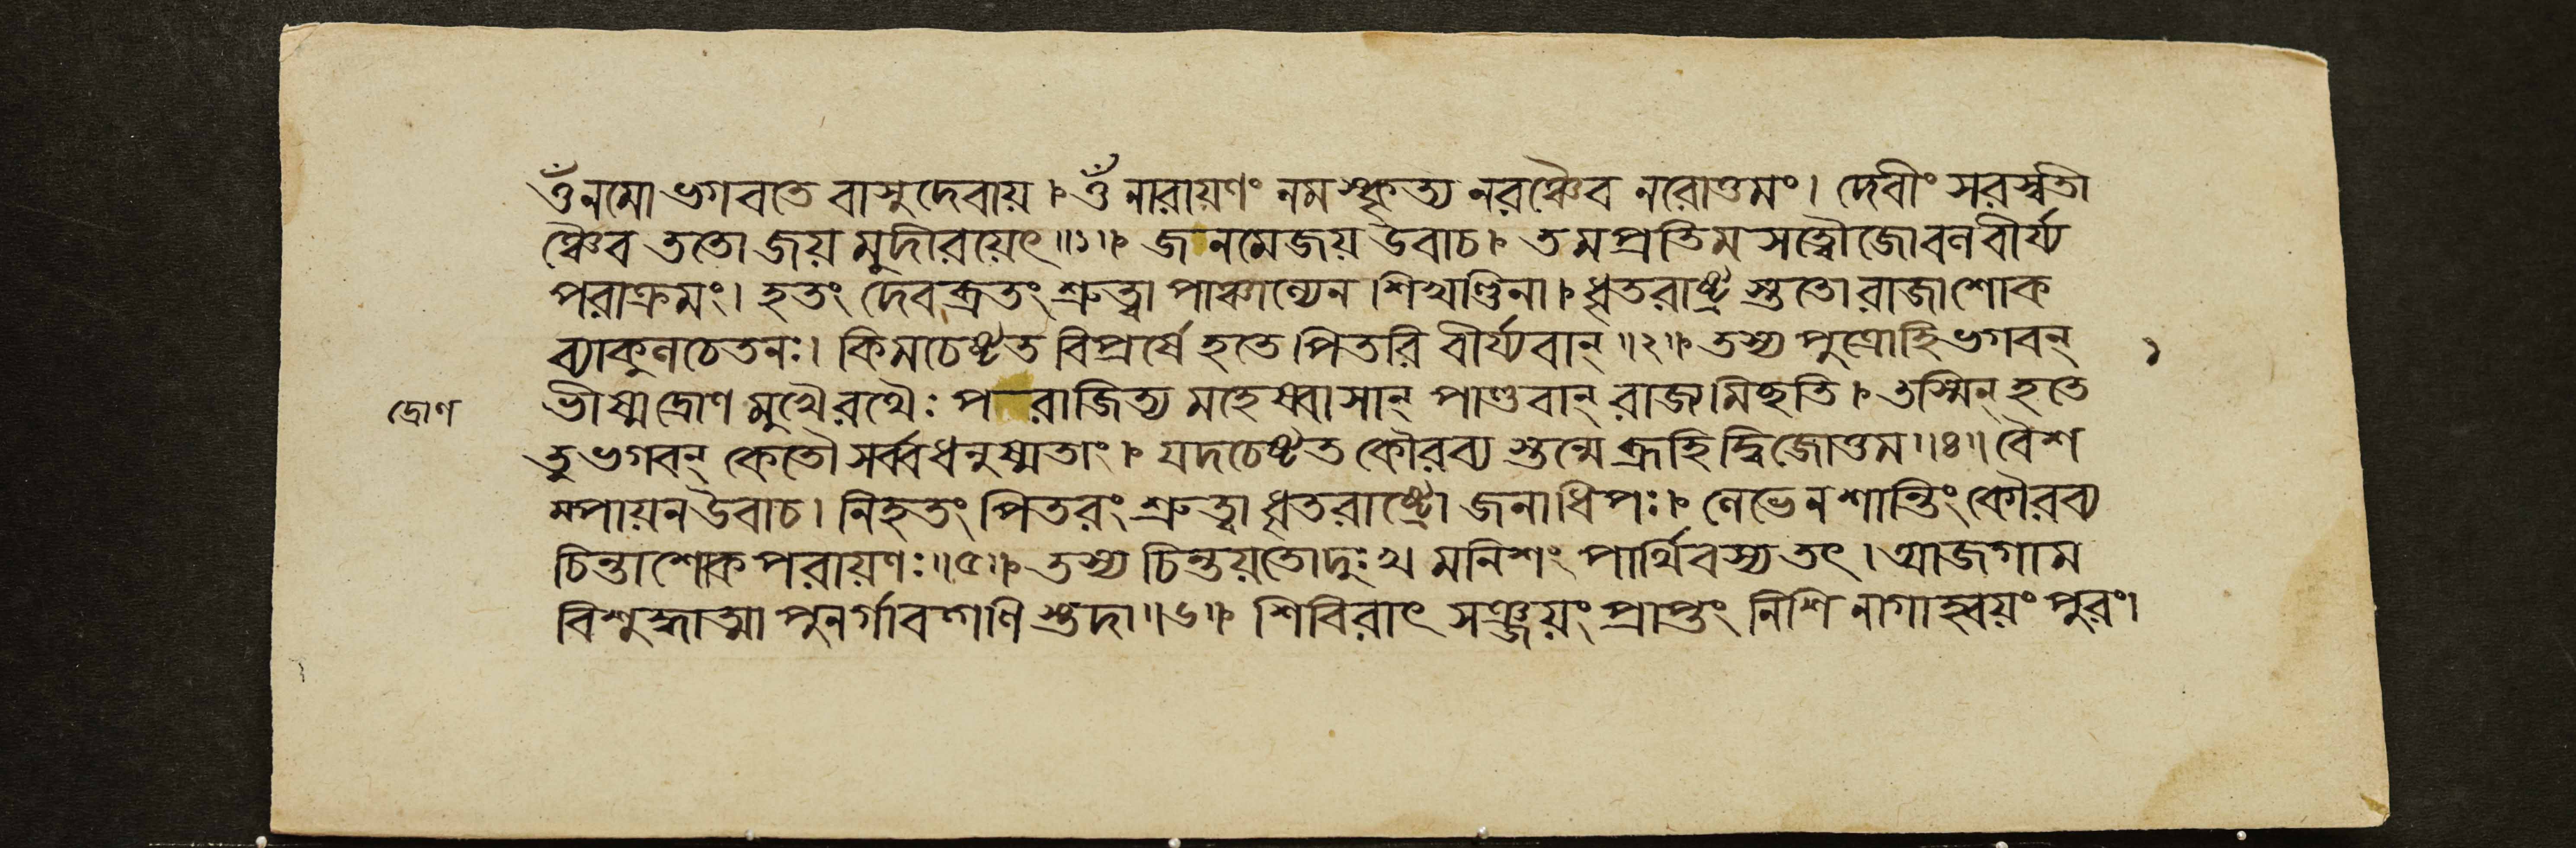 ওঁ নমো ভগবতে বাসুদেবায়। ওঁ নারায়ণং নমস্কৃত্য নরঞ্চৈব নরোত্তমং। দেবীং সরস্বতী
ঞ্চৈব ততো জয় মুদীরয়েৎ॥১॥ জনমেজয় উবাচ। তমপ্রতিমসত্ত্বৌজোবলবীর্য্য
পরাক্রমং। হতং দেবব্রতং শ্রুত্বা পাঞ্চাল্যেন শিখণ্ডিনা। ধৃতরাষ্ট্র স্তুতো রাজা শোক
ব্যাকুলচেতনঃ। কিমচেষ্টত বিপ্রর্ষে হতে পিতরি বীর্য্যবান্॥২॥ তস্য পুত্রোহি ভগবন্
১
দ্রোণ
ভীষ্মদ্রোণ মুখৈরথৈঃ পরাজিত্য মহেষ্বাসান্ পাণ্ডবান্ রাজ্যমিছতি। তস্মিন্ হতে
তু ভগবন্ কেতৌ সর্ব্বধনুষ্মতাং। যদচেষ্টত কৌরব্য স্তন্মে ব্রূহি দ্বিজোত্তম॥৪॥ বৈশ
ম্পায়ন উবাচ। নিহতং পিতরং শ্রুত্বা ধৃতরাষ্ট্রো জনাধিপঃ। লেভে ন শান্তিং কৌরব্য
চিন্তাশোকপরায়ণঃ॥৫॥ তস্য চিন্তয়তো দুঃখ মনিশং পার্থিবস্য তৎ। আজগাম
বিশুদ্ধাত্মা পুনর্গাবল্গণি স্তদা॥৬॥ শিবিরাৎ সঞ্জয়ং প্রাপ্তং নিশি নাগাহ্বয়ং পুরং।